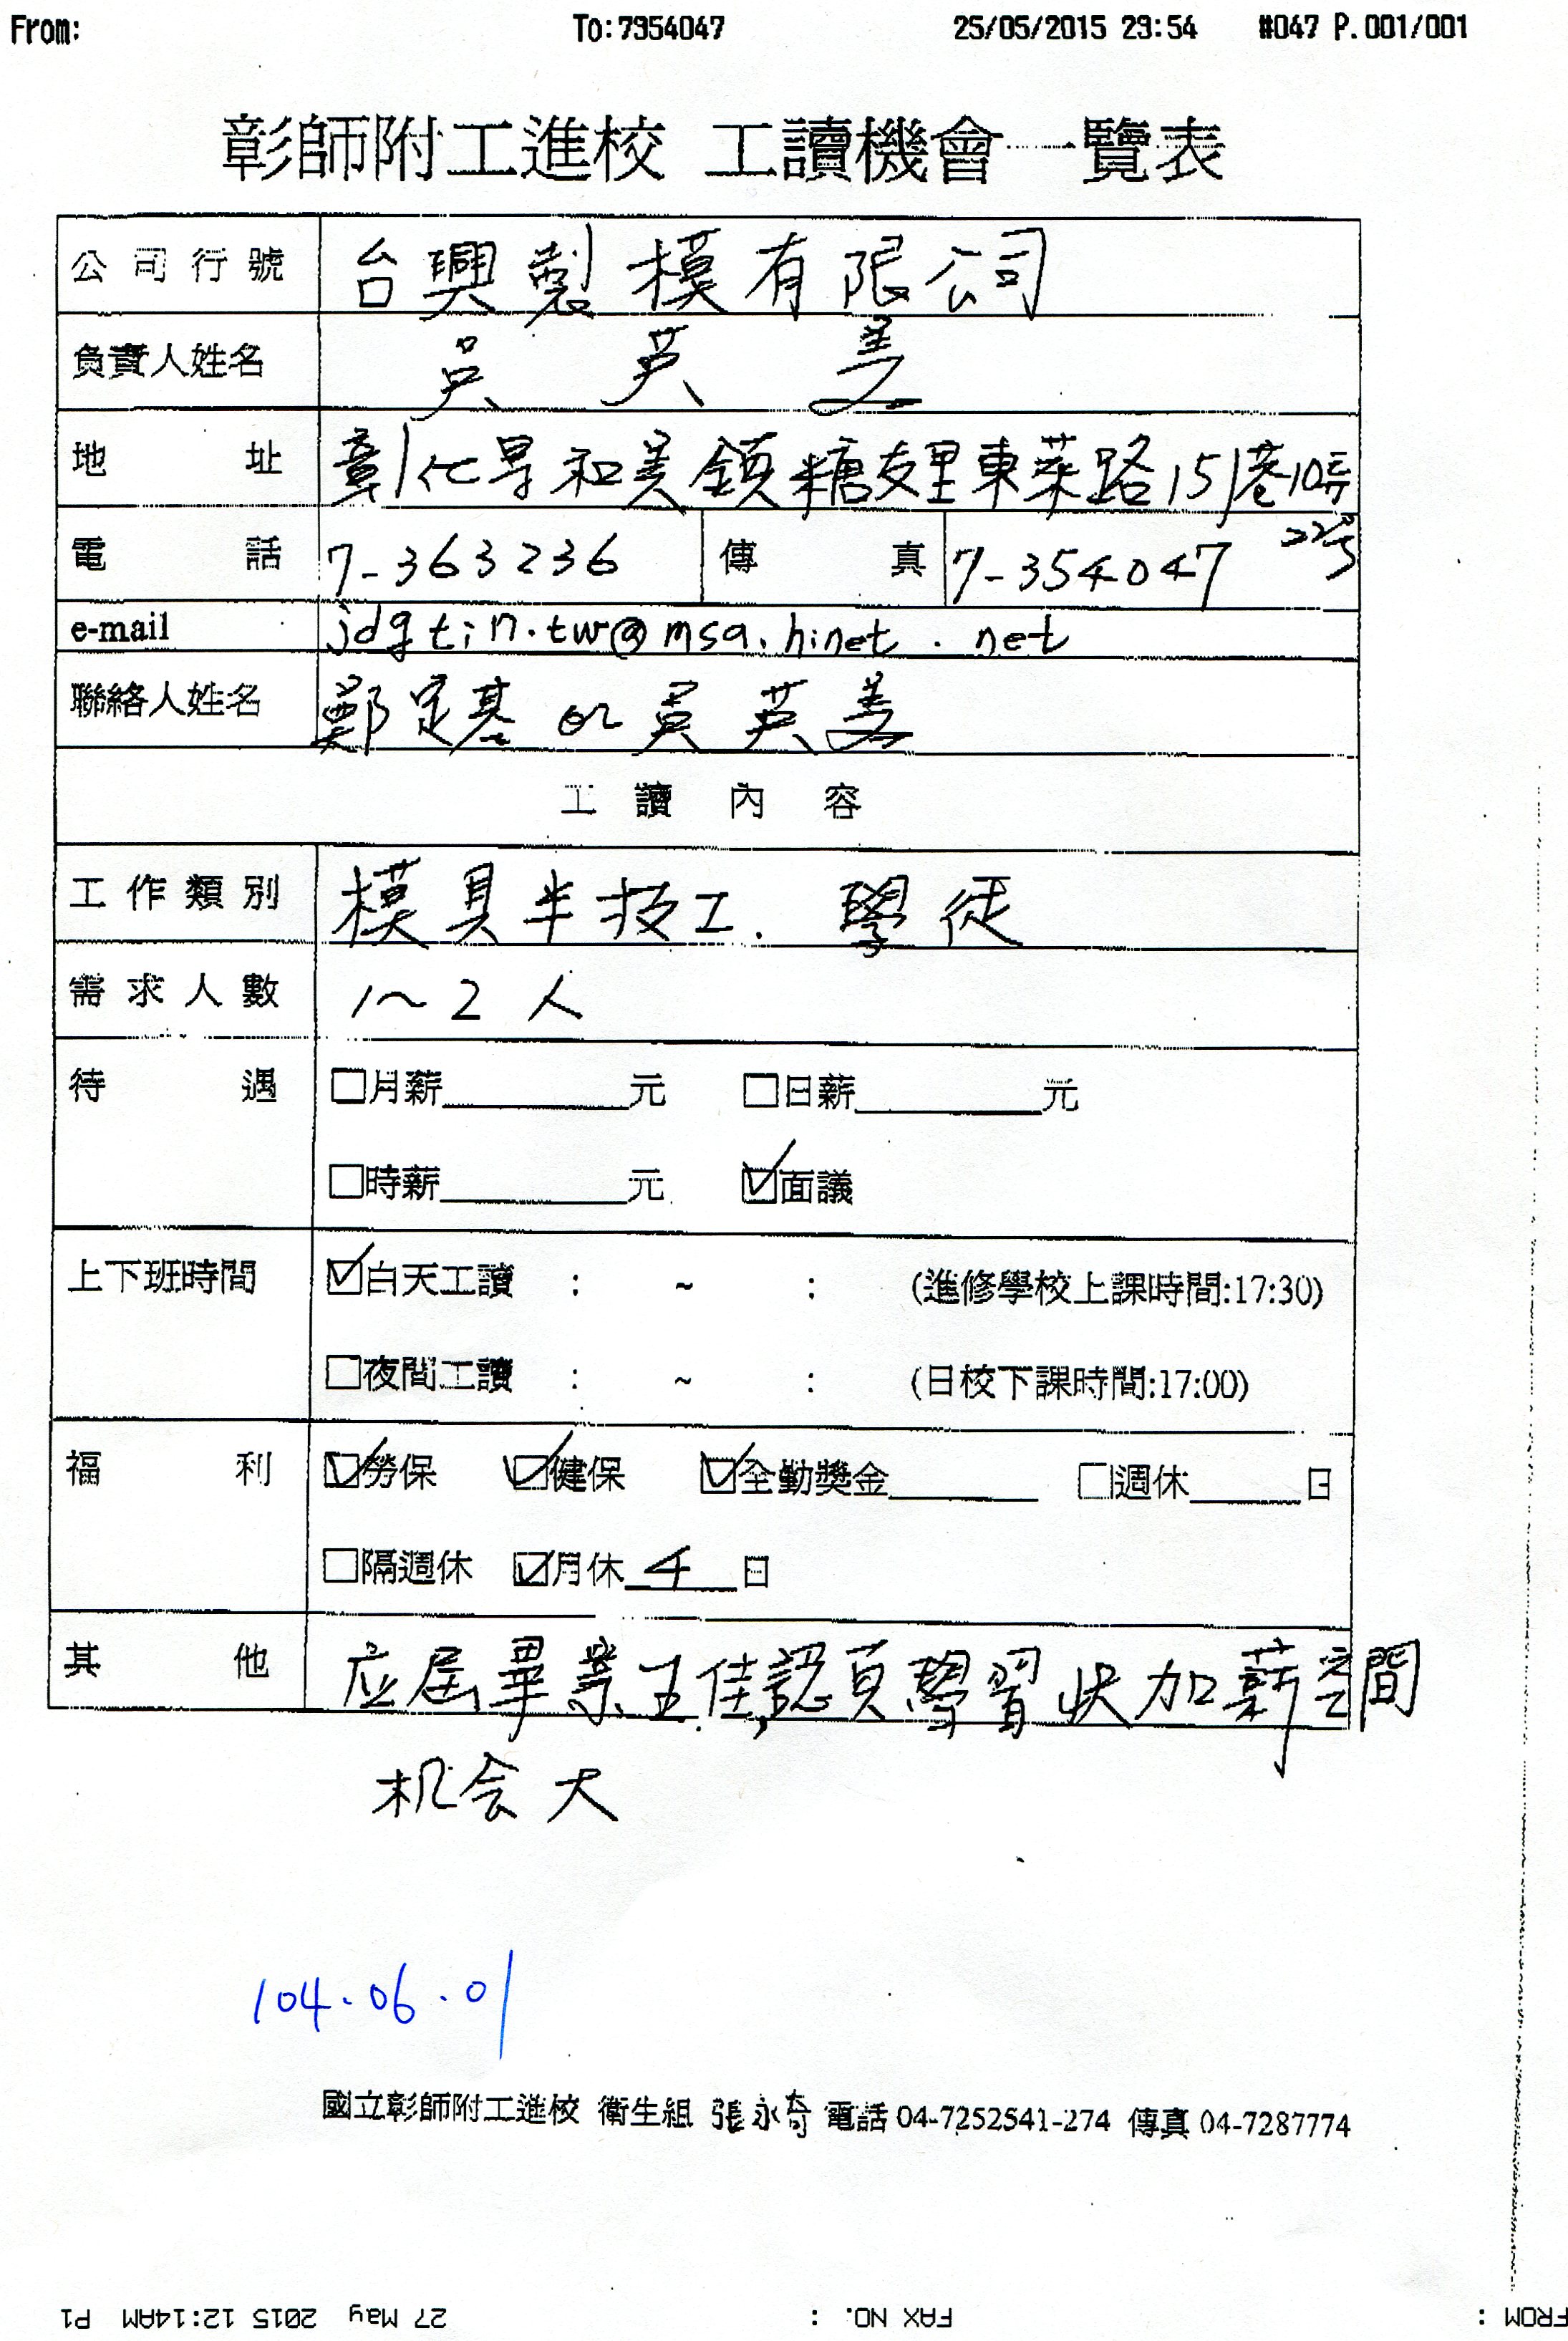 From: To:7354047 25/05/2015 23:54 #047 P.001/001
彰師附工進校 工讀機會一覽表
公司行號 台興製模有限公司
負責人姓名 吳英美
地址 彰化县和美鎮糖友里東萊路151巷10弄22号
電話 7-363236 傳真 7-354047
e-mail jdgtin.tw@msa.hinet.net
聯絡人姓名 鄭定基 or 吳英美
工讀內容
工作類別 模具半技工. 學徒
需求人數 1~2人
待遇 □月薪____元 □日薪____元
□時薪____元 ☑面議
上下班時間 ☑白天工讀 : ~ : (進修學校上課時間:17:30)
□夜間工讀 : ~ : (日校下課時間:17:00)
福利 ☑勞保 ☑健保 ☑全勤獎金____ □週休____日
□隔週休 ☑月休 4 日
其他 应屆畢業 佳,認真學習 加薪空間
机会大
104.06.01
國立彰師附工進校 衛生組 張永奇 電話 04-7252541-274 傳真 04-7287774
FROM : FAX NO. : 27 May 2015 12:14AM P1